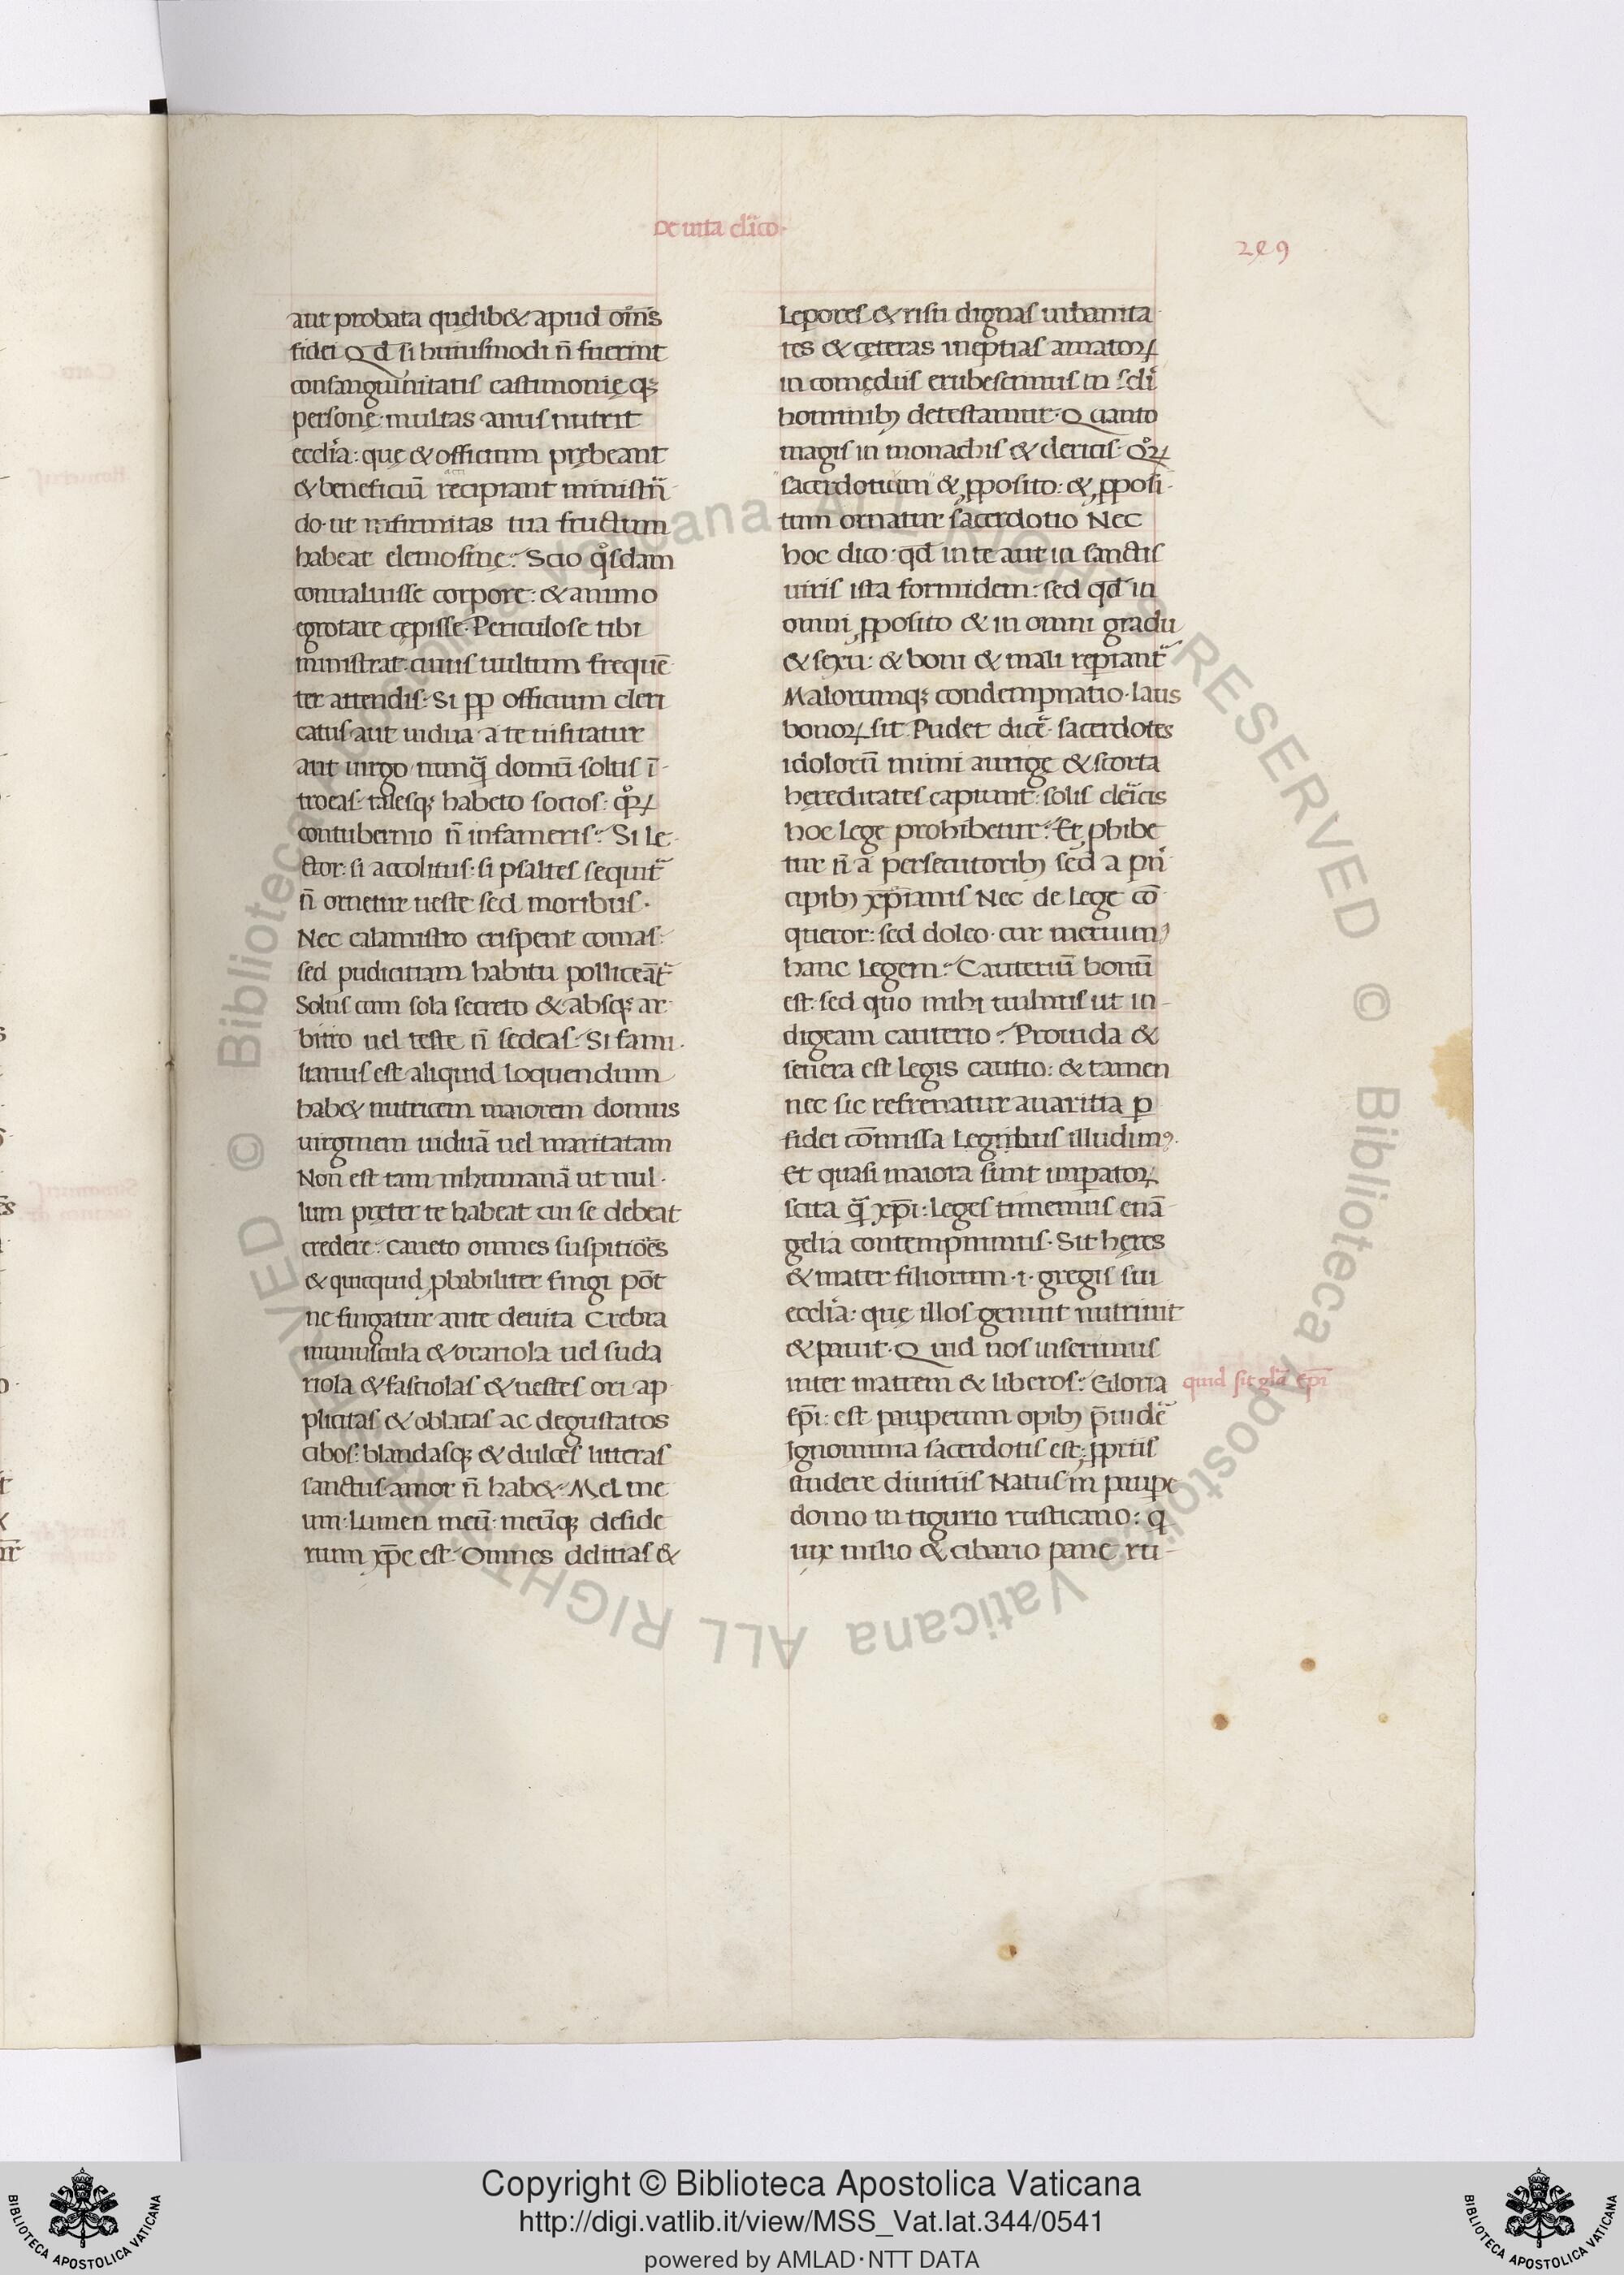 De uita cl̄ico·
289
aut probata quęlib& apud om̄s
fidei Qd̄ si huiusmodi n̄ fuerint
consanguinitatis castimonięq;
personę· multas anus nutrit
eccl̄ia: quę & officium prębeant
& beneficiū recipiant ministrā
do· ut infirmitas tua fructum
habeat elemosinę: Scio qͦsdam
conualuisse corpore: & animo
egrotare cępisse· Periculose tibi
ministrat: cuius uultum frequē
ter attendis: Si pp officium cleri
catus aut uidua a te uisitatur
aut uirgo nunq̄ domū solus ī
troeas: talesq; habeto socios: qͦꝝ
contubernio n̄ infameris: Si le
ctor: si accolitus: si psaltes sequit̄
n̄ ornetur ueste sed moribus·
Nec calamistro crispent comas:
sed pudicitiam habitu polliceāt̄
Solus cum sola secreto & absq; ar
bitro uel teste n̄ sedeas: Si fami
liarius est aliquid loquendum
hab& nutricem maiorem domus
uirginem uiduā uel maritatam
Non est tam inhumanā ut nul
lum pręter te habeat cui se debeat
credere: Caueto omnes suspitiōes
& quicquid ꝓbabiliter fingi pōt
ne fingatur ante deuita Crebra
munuscula & orariola uel suda
riola & fasciolas & uestes ori ap
plicitas & oblatas ac degustatos
cibos: blandasq; & dulces litteras
sanctus amor n̄ hab&: Mel me
um: Lumen meū: meūq; deside
rium xp̄e est: Omnes delitias &
Lepores & risu dignas urbanita
tes & cęteras ineptias amatoꝝ
in comędiis erubescimus in sc̄li
hominibꝫ detestamur· Quanto
magis in monachis & clericis: qͦꝝ
sacerdotium & ꝓposito: & ꝓposi
tum ornatur sacerdotio Nec
hoc dico: qd̄ in te aut in sanctis
uiris ista formidem: sed qd̄ in
omni ꝓposito & in omni gradu
& sexu: & boni & mali reꝑiant̄
Malorumq; condempnatio· laus
bonoꝝ sit Pudet dicē· sacerdotes
idolorū mimi aurigę & scorta
hęreditates capiunt: solis clēicis
hoc lege prohibetur: Et ꝓhibe
tur n̄ a persecutoribꝫ sed a pri
cipibꝫ xp̄ianis Nec de lege cō
queror: sed doleo· cur meruimꝰ
hanc Legem: Cauteriū bonū
est: sed quo mihi uulnus ut in
digeam cauterio: Prouida &
seuera est legis cautio: & tamen
nec sic refrenatur auaritia ꝑ
fidei cōmissa Legibus illudimꝰ
Et quasi maiora sint imꝑatoꝝ
scita q̄ xp̄i: Leges timemus euā
gelia contempnimus· Sit hęres
& mater filiorum ·i· gregis sui
eccl̄ia: quę illos genuit nutriuit
& pauit· Quid nos inserimus
inter matrem & liberos: Gloria
quid sit gl̄a ep̄i
ep̄i: est pauperum opibꝫ p̄uidē
Ignominia sacerdotis est ꝓpriis
studere diuitiis Natus in paupe
domo in tigurio rusticano: q
uix milio & cibario pane ru
Copyright © Biblioteca Apostolica Vaticana
http://digi.vatlib.it/view/MSS_Vat.lat.344/0541
powered by AMLAD·NTT DATA
BIBLIOTECA APOSTOLICA VATICANA
BIBLIOTECA APOSTOLICA VATICANA
© Biblioteca Apostolica Vaticana ALL RIGHTS RESERVED © Biblioteca Apostolica Vaticana ALL RIGHTS RESERVED